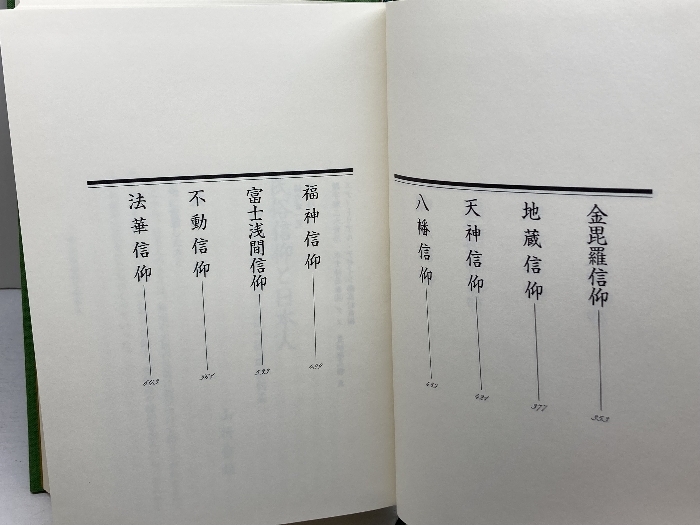 金毘羅信仰 353
地蔵信仰 377
天神信仰
八幡信仰
福神信仰
富士浅間信仰
不動信仰
法華信仰